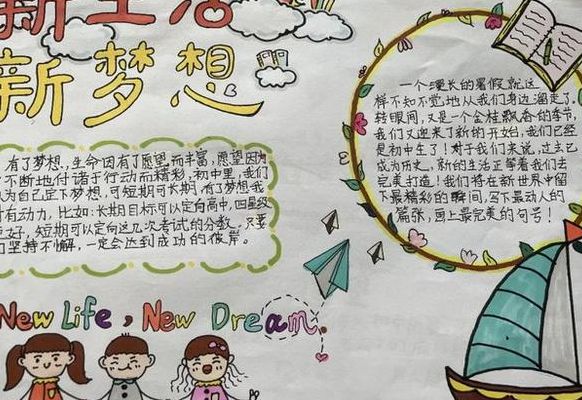 新生活
新梦想
有了梦想，生命因有了愿望而丰富，愿望因为
不断地付诸于行动而精彩，初中里，我们
认为自己定下梦想，可短期可长期，有了梦想我
有动力，比如：长期目标可以定向高中，四星级
更好，短期可以定向这几次考试的分数，只要
们坚持不懈，一定会达到成功的彼岸。
一个漫长的暑假就这
样不知不觉地从我们身边溜走了，
转眼间，又是一个金桂飘香的季节，
我们又迎来了新的开始，我们已经
是初中生了！对于我们来说，过去已
成为历史，新的生活正等着我们去
完美打造！我们将在新世界中留
下最精彩的瞬间，写下最动人的
篇张，画上最完美的句号！
New Life, New Dream.